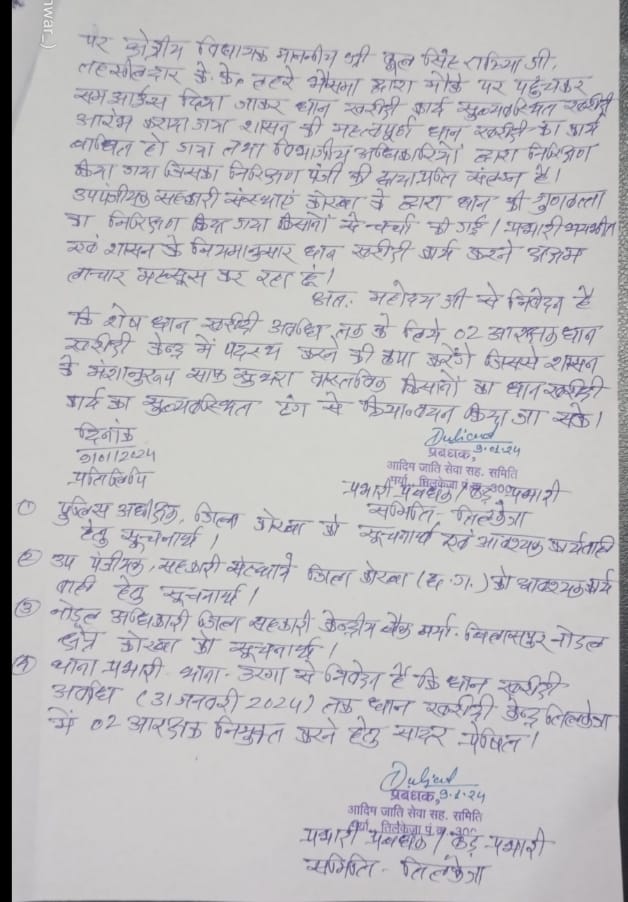 nwar_)
पर क्षेत्रीय विधायक माननीय श्री फूल सिंह राठिया जी,
तहसीलदार के.के. लहरे भैसमा द्वारा मौके पर पहुंचकर
समझाईस दिया जाकर धान खरीदी कार्य सुव्यवस्थित खरीदी
आरंभ कराया गया शासन की महत्वपूर्ण धान खरीदी का कार्य
बाधित हो गया तथा विभागीय अधिकारियों द्वारा निरिक्षण
किया गया जिसका निरिक्षण पंजी की छायाप्रति संलग्न है।
उपपंजीयक सहकारी संस्थाएं कोरबा के द्वारा धान की गुणवत्ता
का निरिक्षण किया गया किसानों से चर्चा की गई। प्रभारी भयभीत
एवं शासन के नियमानुसार धान खरीदी कार्य करने अक्षम
लाचार महसूस कर रहा हूं।
अतः महोदय जी से निवेदन है
कि शेष धान खरीदी अवधि तक के लिये 02 आरक्षक धान
खरीदी केन्द्र में पदस्थ करने की कृपा करेंगे जिससे शासन
के मंशानुरूप साफ सुथरा वास्तविक किसानों का धान खरीदी
कार्य का सुव्यवस्थित ढंग से क्रियान्वयन किया जा सके।
दिनांक
9/01/2024
प्रतिलिपि
9-1-24
प्रबंधक,
आदिम जाति सेवा सह. समिति
मर्या. तिलकेजा पं.क्र. 300
प्रभारी प्रबंधक / केंद्र प्रभारी
समिति - तिलकेजा
① पुलिस अधीक्षक, जिला कोरबा को सूचनार्थ एवं आवश्यक कार्यवाही
हेतु सूचनार्थ।
② उप पंजीयक, सहकारी संस्थाये जिला कोरबा (छ.ग.) को आवश्यक कार्य
वाही हेतु सूचनार्थ।
③ नोडल अधिकारी जिला सहकारी केन्द्रीय बैंक मर्या. बिलासपुर नोडल
क्षेत्र कोरबा को सूचनार्थ।
④ थाना प्रभारी थाना - उरगा से निवेदन है कि धान खरीदी
अवधि (31 जनवरी 2024) तक धान खरीदी केन्द्र तिलकेजा
में 02 आरक्षक नियुक्त करने हेतु सादर प्रेषित।
प्रबंधक, 9.1.24
आदिम जाति सेवा सह. समिति
मर्या. तिलकेजा पं.क्र. 300
प्रभारी प्रबंधक / केंद्र प्रभारी
समिति - तिलकेजा